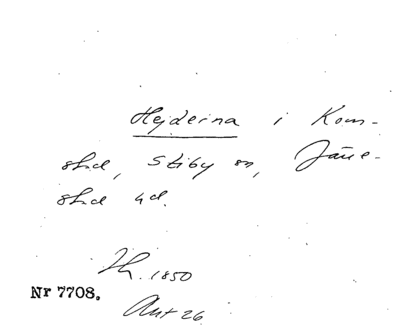 Hejdeina i Kom-
stad, Stiby sn, Järre-
stad hd.
Th. 1850
Nr 7708.
Ant 26